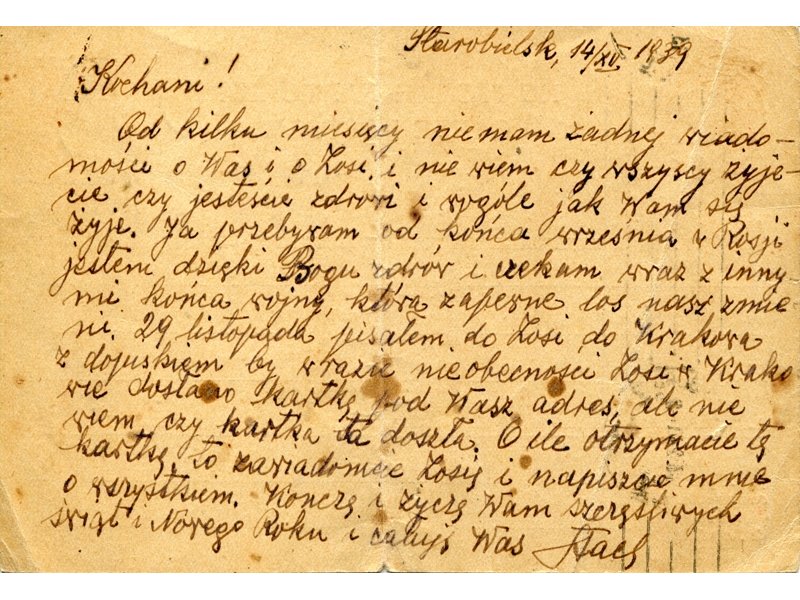 Starobielsk, 14/XII 1939
Kochani!
Od kilku miesięcy nie mam żadnej wiado-
mości o Was i o Zosi, i nie wiem czy wszyscy żyje-
cie, czy jesteście zdrowi i wogóle jak Wam się
żyje. Ja przebywam od końca września w Rosji
jestem dzięki Bogu zdrów i czekam wraz z inny
mi końca wojny, która zapewne los nasz zmie-
ni. 29 listopada pisałem do Zosi do Krakowa
z dopiskiem by w razie nieobecności Zosi w Krako
wie dostano kartkę pod Wasz adres, ale nie
wiem czy kartka ta doszła. O ile otrzymacie tę
kartkę to zawiadomcie Zosię i napiszcie mnie
o wszystkiem. Kończę i życzę Wam szczęśliwych
świąt i Nowego Roku i całuję Was Stach